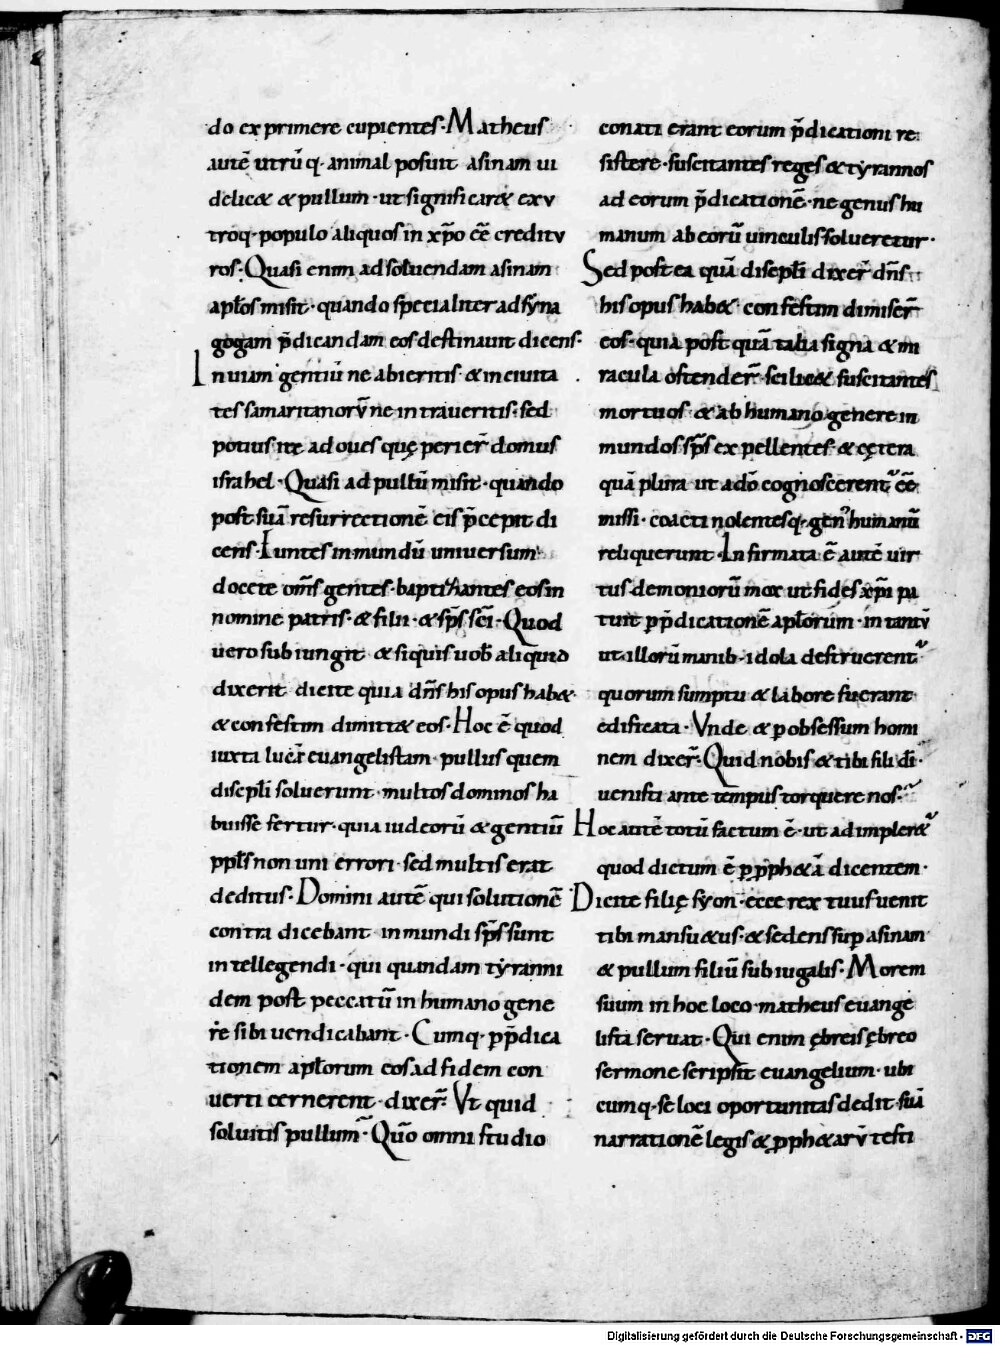 do exprimere cupientes· Matheus
autē utrūq· animal posuit asinam ui
delic& & pullum· ut significar& ex v
troq· populo aliquos in xp̄o eē creditv
ros· Quasi enim ad soluendam asinam
apl̄os misit· quando specialiter ad syna
gogam p̄dicandam eos destinauit dicens·
In uiam gentiū ne abieritis· & in ciuita
tes samaritanorv̄ ne intraueritis· sed
potius ite ad oues quę perier̄ domus
israhel· Quasi ad pullū misit· quando
post suā resurrectionē eis p̄cepit di
cens· Iuntes in mundū uniuersum
docete om̄s gentes· baptizantes eos in
nomine patris· & filii· & sp̄s sc̄i· Quod
uero subiungit & siquis uob̄ aliquid
dixerit dicite quia dn̄s his opus hab&·
& confestim dimitt& eos· Hoc ē quod
iuxta lucā euangelistam· pullus quem
discipl̄i soluerunt· multos dominos ha
buisse fertur· quia iudeorū & gentiū
ppl̄s non uni errori· sed multis erat
deditus· Domini autē qui solutionē
contradicebant inmundi sp̄s sunt
intellegendi· qui quandam tyranni
dem post peccatū in humano gene
re sibi uendicabant· Cumq· p p̄dica
tionem apl̄orum eos ad fidem con
uerti cernerent· dixer̄· Vt quid
soluitis pullum· Quō omni studio
conati erant eorum p̄dicationi re
sistere· suscitantes reges & tyrannos
ad eorum p̄dicationē· ne genus hu
manum ab eorū uinculis solueretur·
Sed postea quā discipl̄i dixer̄ dn̄s
his opus hab& confestim dimiser̄
eos· quia post quā talia signa & mi
racula ostender̄· scilic& suscitantes
mortuos· & ab humano genere in
mundos sp̄s expellentes· & cętera
quā plura ut a dō cognoscerent᷑ eē
missi· coacti nolentesq· gen᷒ humanū
reliquerunt· Infirmata ē autē uir
tus demoniorū mox ut fides xp̄i pa
tuit p p̄dicationē apl̄orum· in tantv̄
ut illorū manib· idola destruerent᷑
quorum sumptu & labore fuerant
edificata· Vnde & p obsessum homi
nem dixer̄· Quid nobis & tibi fili dī·
uenisti ante tempus torquere nos·
Hoc autē totū factum ē· ut adimpler&᷑
quod dictum ē p pph&ā dicentem·
Dicite filię syon· ecce rex tuus uenit
tibi mansu&us· & sedens sup asinam
& pullum filiū subiugalis· Morem
suum in hoc loco matheus euange
lista seruat· Qui enim ębreis ębreo
sermone scripsit euangelium· ubi
cumq· se loci oportunitas dedit suā
narrationē legis & pph&arv̄ testi
Digitalisierung gefördert durch die Deutsche Forschungsgemeinschaft - DFG